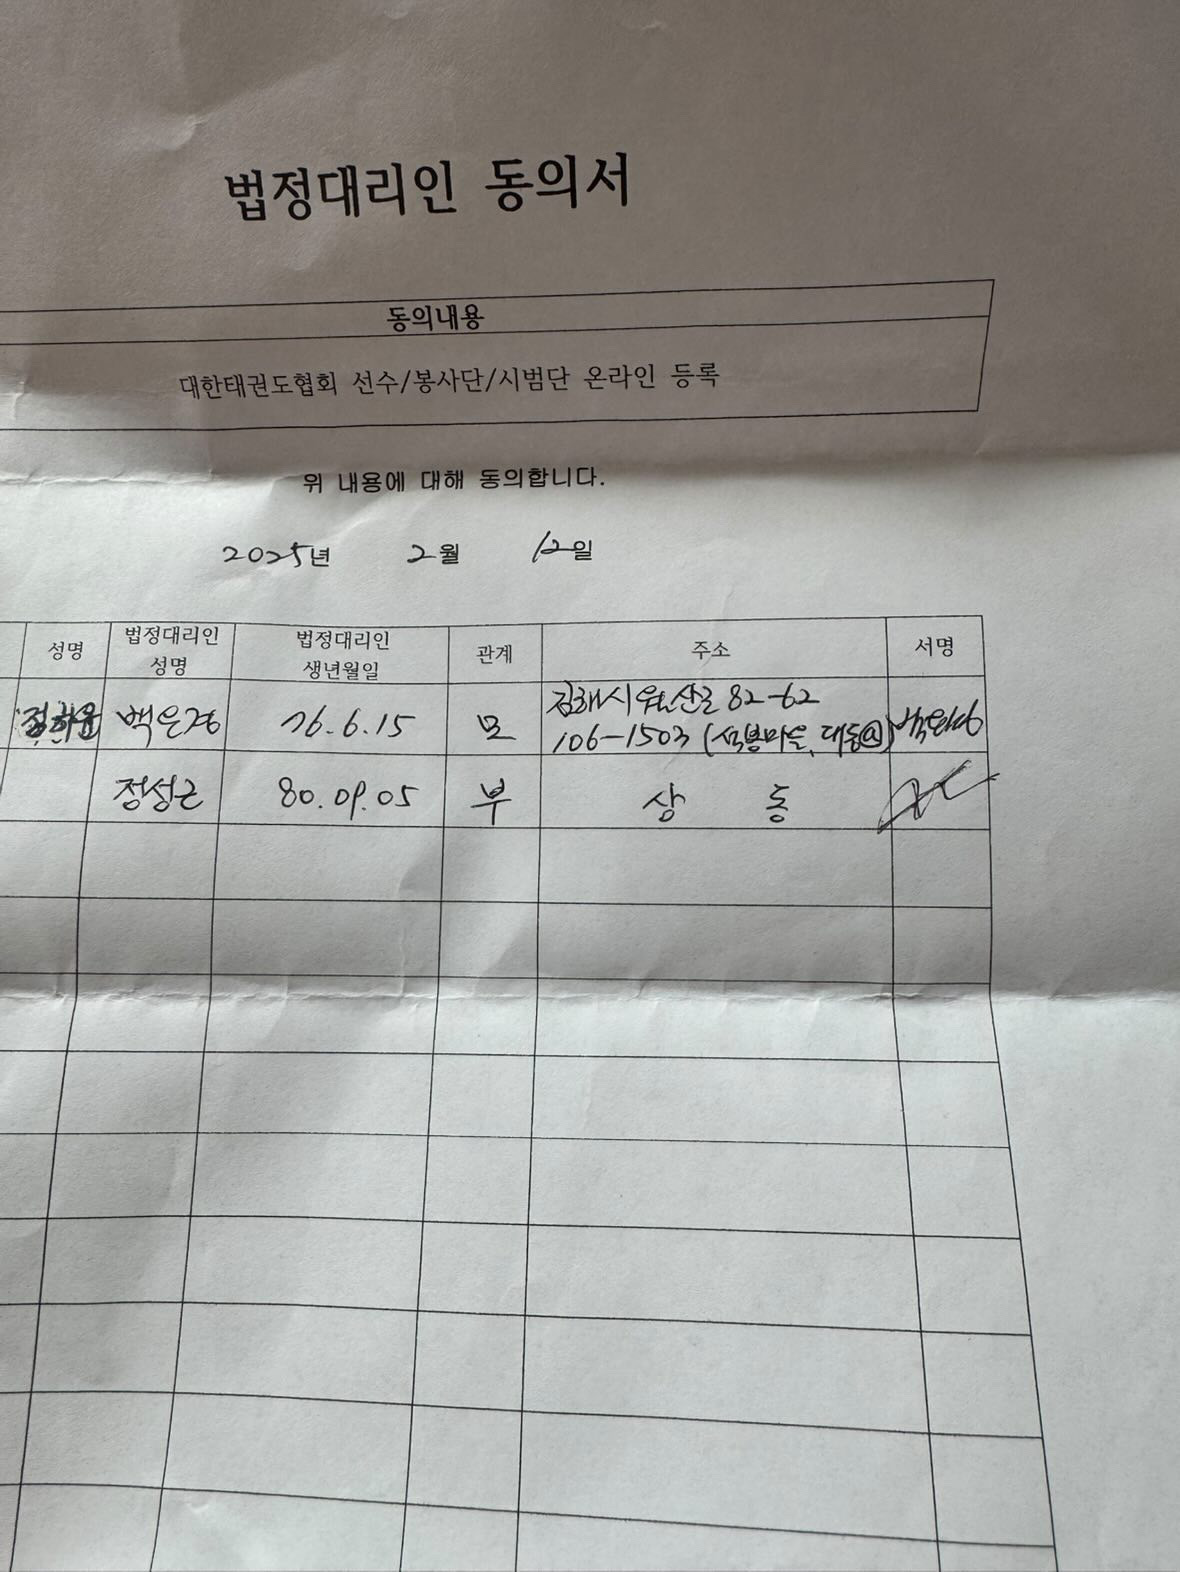 법정대리인 동의서
동의내용
대한태권도협회 선수/봉사단/시범단 온라인 등록
위 내용에 대해 동의합니다.
2025년 2월 12일
성명 법정대리인 성명 법정대리인 생년월일 관계 주소 서명
정하윤 백은경 76.6.15 모 김해시 82-62
106-1503 (석봉마을, 대동@)
정성근 80.09.05 부 상 동